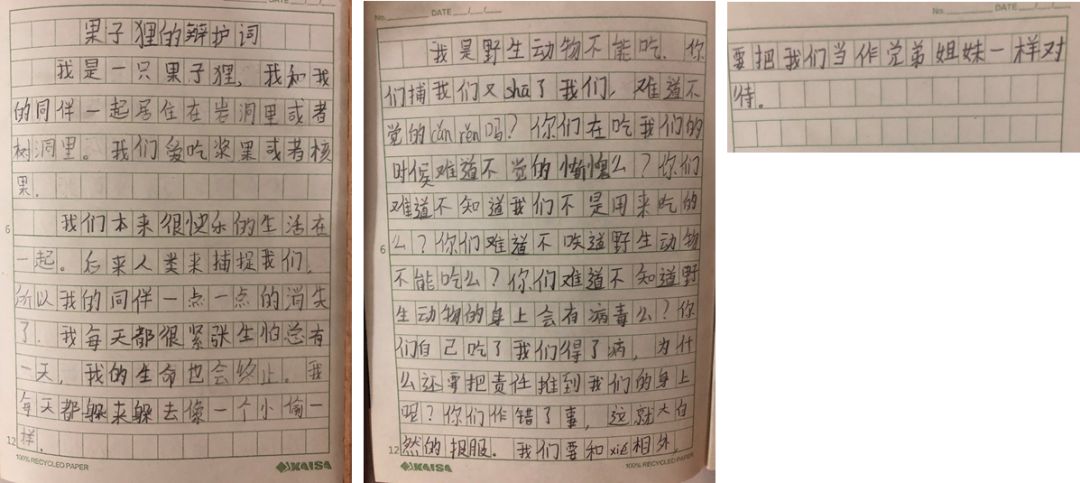 DATE
果子狸的辩护词
我是一只果子狸，我和我
的同伴一起居住在岩洞里或者
树洞里。我们爱吃浆果或者核
果。
我们本来很快乐的生活在
一起。后来人类来捕捉我们，
所以我的同伴一点一点的消失
了。我每天都很紧张生怕总有
一天，我的生命也会终止。我
每天都躲来躲去像一个小偷一
样。
6
12
100% RECYCLED PAPER
KAISA
No. DATE
我是野生动物不能吃，你
们捕我们又shā了我们，难道不
觉的cán rěn吗？你们在吃我们的
时候难道不觉的惭愧么？你们
难道不知道我们不是用来吃的
么？你们难道不知道野生动物
不能吃么？你们难道不知道野
生动物的身上会有病毒么？你
们自己吃了我们得了病，为什
么还要把责任推到我们的身上
呢？你们作错了事，这就大自
然的报服。我们要和xié相处，
6
12
KAISA
100% RECYCLED PAPER
No. DATE
要把我们当作兄弟姐妹一样对
待。